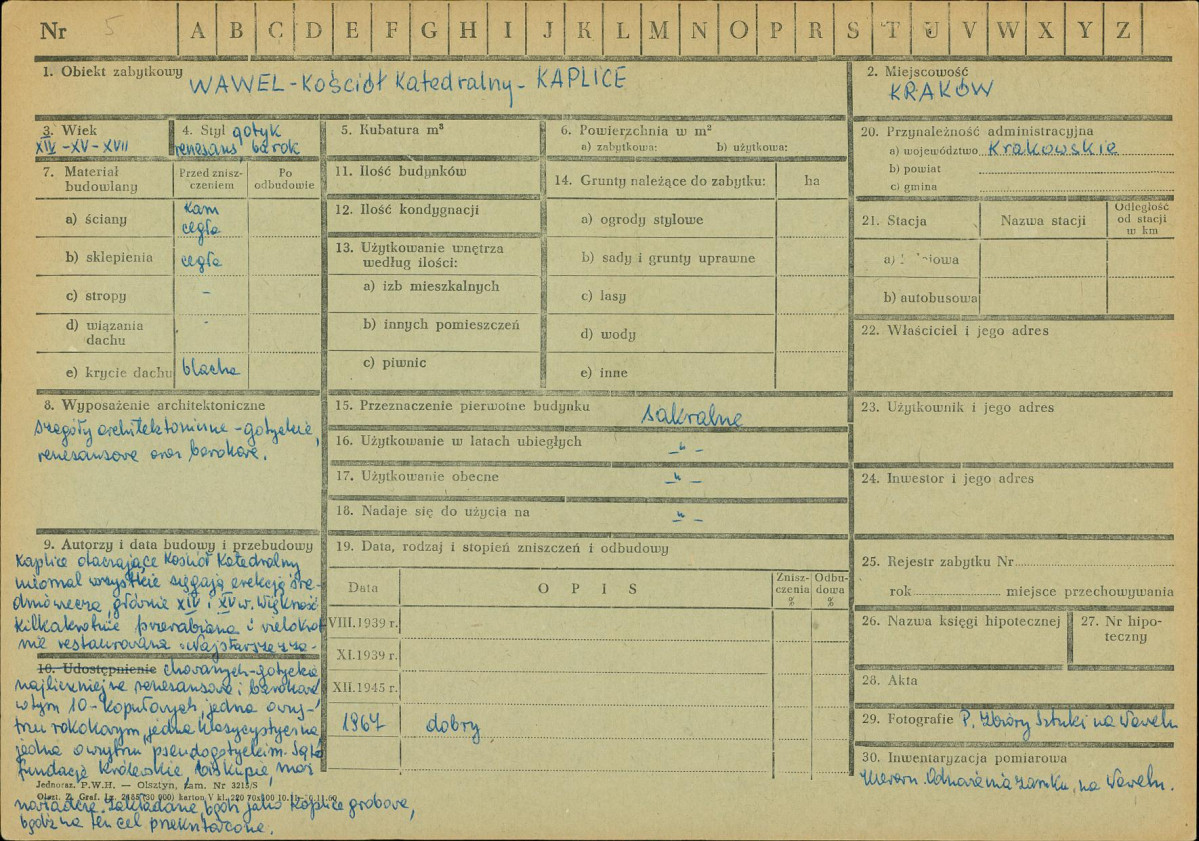 Nr 5 A B C D E F G H I J K L M N O P R S T U V W X Y Z
1. Obiekt zabytkowy WAWEL - Kościół Katedralny - KAPLICE
2. Miejscowość
KRAKÓW
3. Wiek
XIV - XV - XVII
4. Styl gotyk
renesans, barok
5. Kubatura m³
6. Powierzchnia w m²
a) zabytkowa: b) użytkowa:
7. Materiał
budowlany
Przed znisz-
czeniem
Po
odbudowie
a) ściany kam
cegła
b) sklepienia cegła
c) stropy -
d) wiązania
dachu -
e) krycie dachu blacha
8. Wyposażenie architektoniczne
szegóły architektoniczne - gotyckie,
renesansowe oraz barokowe.
9. Autorzy i data budowy i przebudowy
Kaplice otaczające Kościół Katedralny
niomal wszystkie sięgają erekcją śre-
dniowiecza, głównie XIV i XV w. Większość
kilkakrotnie przerabiana i wielokrot
nie restaurowana. Najstarsze z za-
10. Udostępnienie chowanych - gotyckie
najliczniejsze renesansowe i barokowe
w tym 10 - kopułowych, jedna o wny-
trzu rokokowym, jedna klasycystyczna,
jedna o wnytrzu pseudogotyckim. Są to
fundacje królewskie, biskupie, moż
nowładcze. Zakładane bądź jako kaplice grobowe,
bądź na ten cel przekształcone.
Jednoraz. P.W.H. — Olsztyn, zam. Nr 3215/S
11. Ilość budynków
12. Ilość kondygnacji
13. Użytkowanie wnętrza
według ilości:
a) izb mieszkalnych
b) innych pomieszczeń
c) piwnic
14. Grunty należące do zabytku: ha
a) ogrody stylowe
b) sady i grunty uprawne
c) lasy
d) wody
e) inne
15. Przeznaczenie pierwotne budynku sakralne
16. Użytkowanie w latach ubiegłych -"-
17. Użytkowanie obecne -"-
18. Nadaje się do użycia na -"-
19. Data, rodzaj i stopień zniszczeń i odbudowy
Data OPIS Znisz-
czenia
%
Odbu-
dowa
%
VIII.1939 r.
XI.1939 r.
XII.1945 r.
1967 dobry
20. Przynależność administracyjna
a) województwo Krakowskie
b) powiat
c) gmina
21. Stacja Nazwa stacji Odległość
od stacji
w km
b) autobusowa
22. Właściciel i jego adres
23. Użytkownik i jego adres
24. Inwestor i jego adres
25. Rejestr zabytku Nr
rok miejsce przechowywania
26. Nazwa księgi hipotecznej
27. Nr hipo-
teczny
28. Akta
29. Fotografie P. Zbiory Sztuki na Wawelu
30. Inwentaryzacja pomiarowa
Kierown. Odnowienia zamku, na Wawelu.